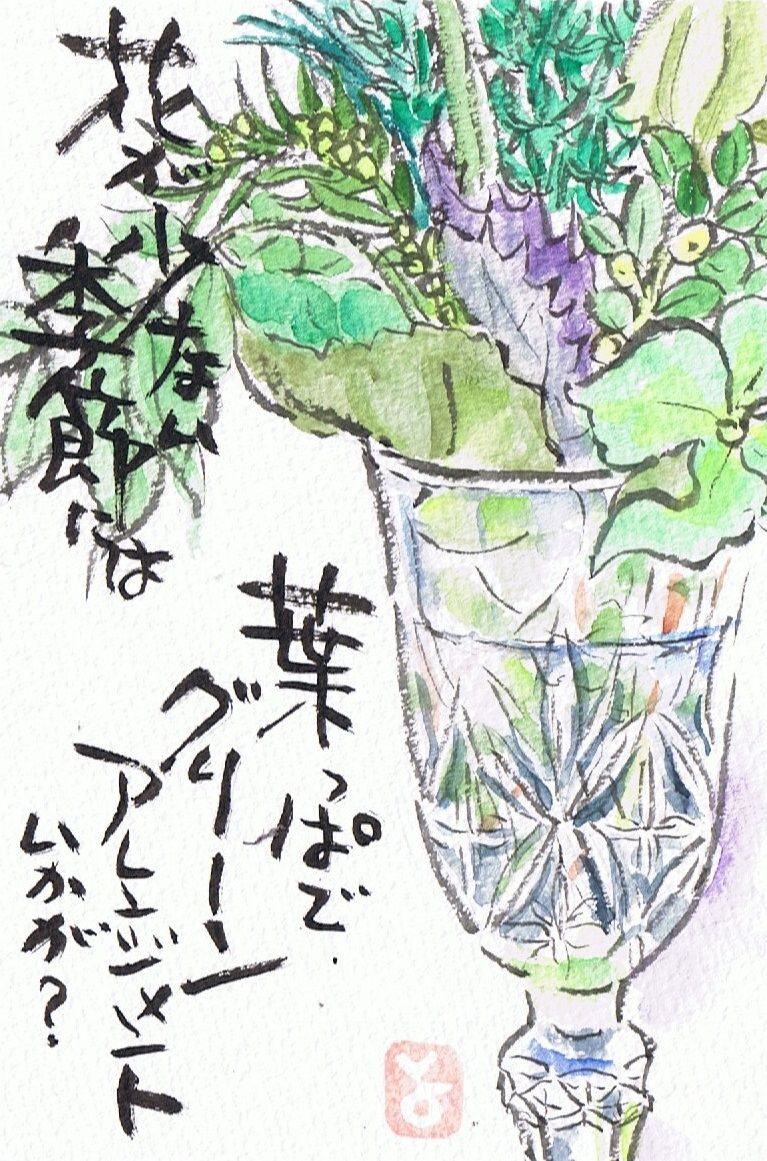 花が
少ない
季節には
葉っぱで.
グリーン
アレンジメント
いかが?
とよ